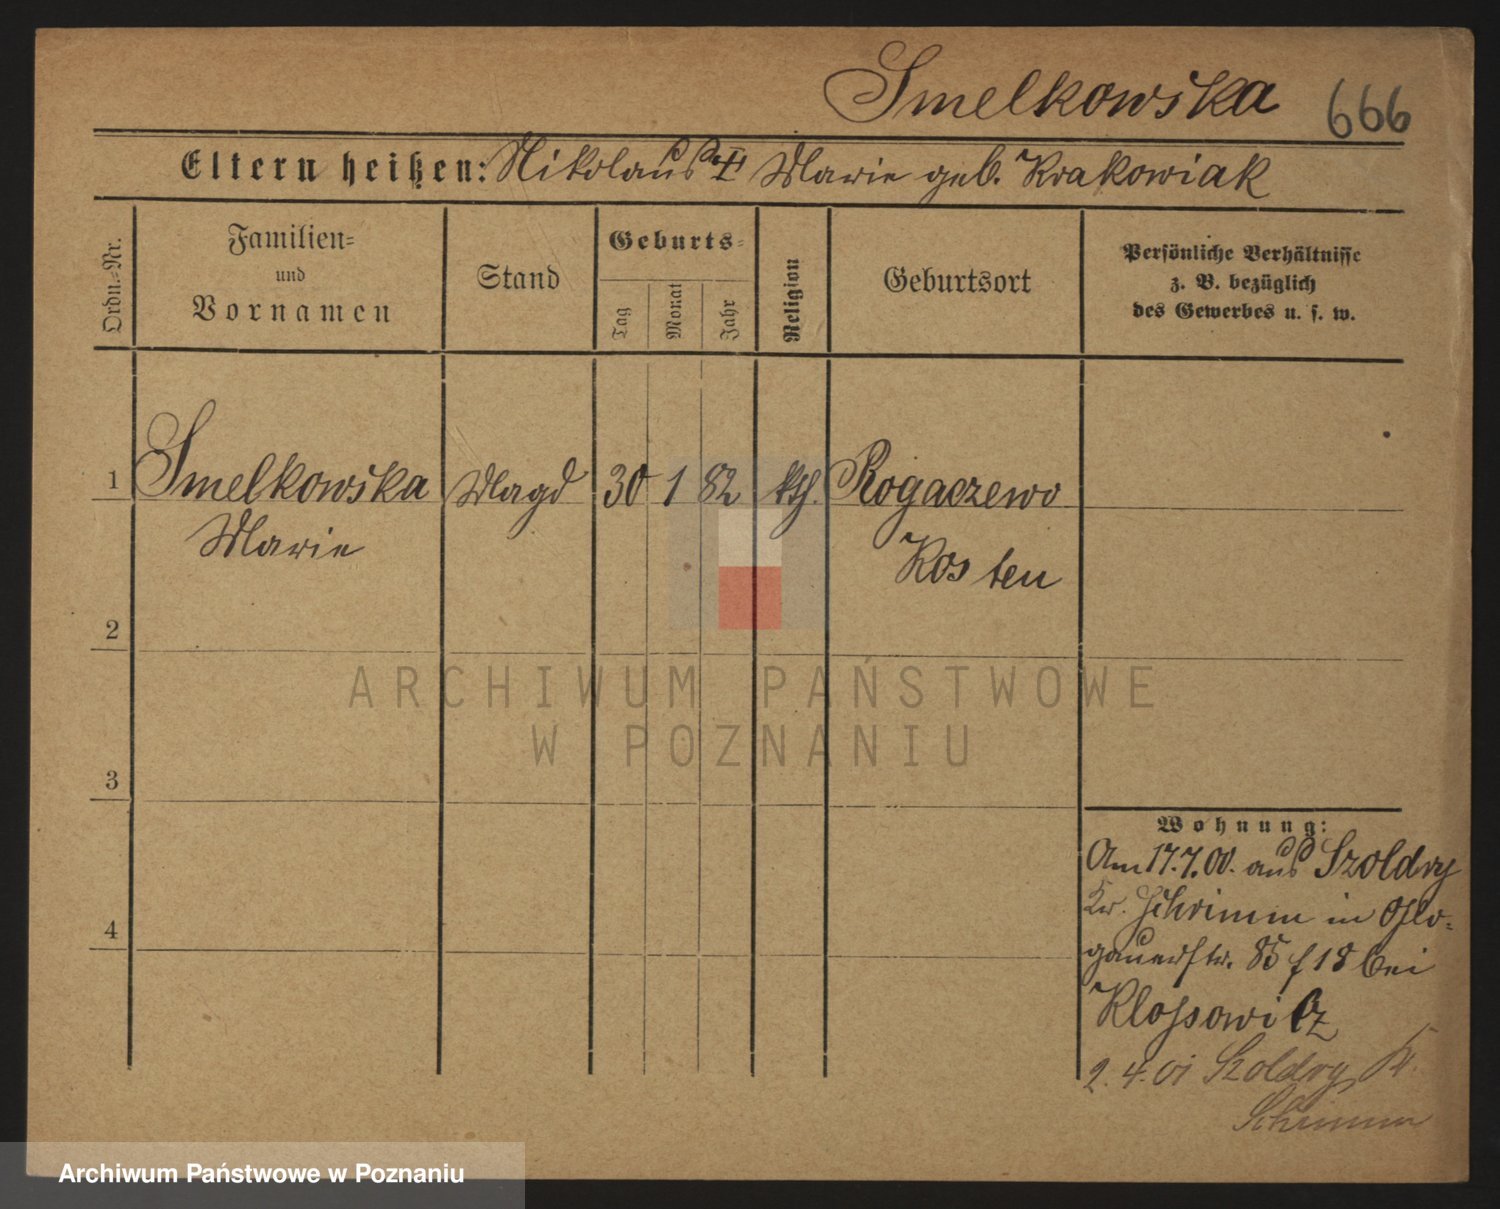 Smelkowska 666
Eltern heißen: Nikolaus Marie geb. Krakowiak
Ordn.=Nr.
Familien=
und
Vornamen
Stand
Geburts=
Tag
Monat
Jahr
Religion
Geburtsort
Persönliche Verhältnisse
z. B. bezüglich
des Gewerbes u. s. w.
1 Smelkowska Magd 30 1 82 kth. Rogaczewo
Marie Kosten
2
3
4
Wohnung:
Am 17.7.00. aus Szoldry
Kr. Schrimm in Glo=
gauerstr. 85 f 18 bei
Klossowicz
2.4.01 Szoldry, Kr.
Schrimm
ARCHIWUM PAŃSTWOWE
W POZNANIU
Archiwum Państwowe w Poznaniu